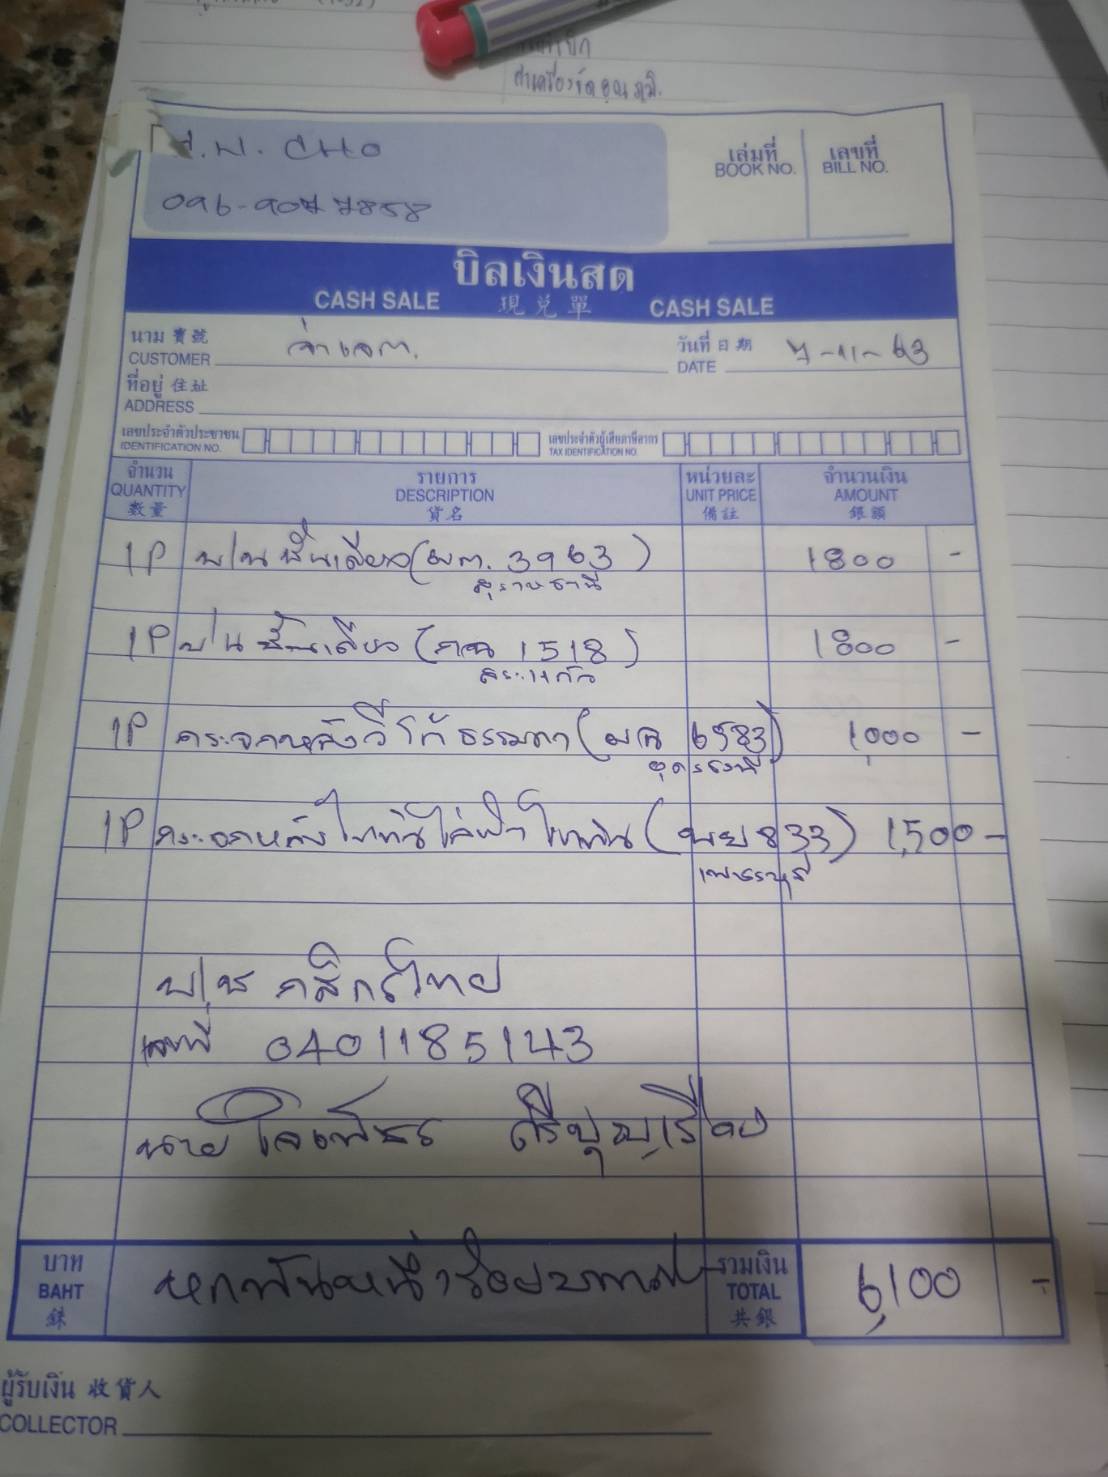 S.N. CHO
096-907 7858
เล่มที่ เลขที่
BOOK NO. BILL NO.
บิลเงินสด
CASH SALE 現兌單 CASH SALE
นาม 寶號 วันที่ 日期
CUSTOMER จ่าเอก. DATE 7-11-63
ที่อยู่ 住址
ADDRESS
เลขประจำตัวประชาชน เลขประจำตัวผู้เสียภาษีอากร
IDENTIFICATION NO. TAX IDENTIFICATION NO.
จำนวน รายการ หน่วยละ จำนวนเงิน
QUANTITY DESCRIPTION UNIT PRICE AMOUNT
數量 貨名 備註 銀額
1P ชั้นเดียว ( 3963 ) 1800 -
สุราษธานี
1P ชั้นเดียว ( 1518 ) 1800 -
สระแก้ว
1P กระจกหลังวีโก้ธรรมดา ( 6583 ) 1,000 -
อุดรธานี
1P กระจกหลัง ( 833 ) 1,500 -
เพชรบุรี
บ/ช กสิกรไทย
เลขที่ 0401185143
นาย ศรีบุญเรือง
บาท รวมเงิน
BAHT หกพันหนึ่งร้อยบาท TOTAL 6,100 -
銖 共銀
ผู้รับเงิน 收貨人
COLLECTOR